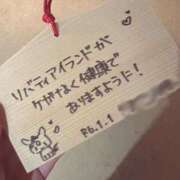 リバティアイランドが
ケガなく健康で
ありますように!
R6.1.1